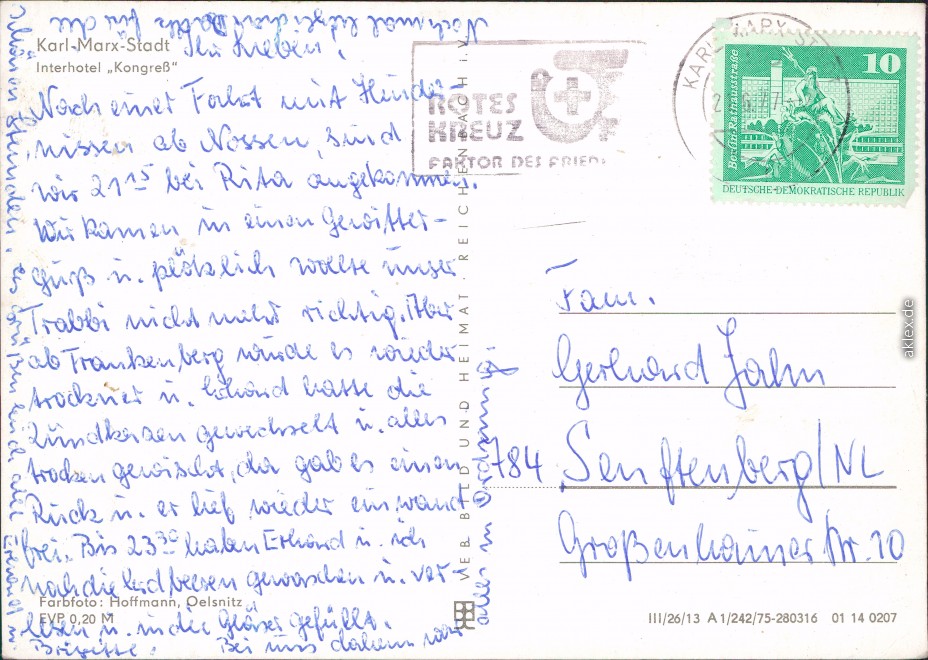 Nochmal herzlichen Dank für die
schönen Stunden. Es grüßen Euch alle Erhard u.
Brigitte.
Karl-Marx-Stadt
Interhotel „Kongreß“
Ihr Lieben!
Nach einer Fahrt mit Hinder-
nissen ab Nossen, sind
wir 21¹⁵ bei Rita angekommen.
Wir kamen in einen Gewitter-
guß u. plötzlich wollte unser
Trabbi nicht mehr richtig. Aber
ab Frankenberg wurde es wieder
trockner u. Erhard hatte die
Zündkerzen gewechselt u. alles
trocken gewischt, da gab es einen
Ruck u. er lief wieder einwand
frei. Bis 23³⁰ haben Erhard u. ich
noch die Erdbeeren gewaschen u. ver
lesen u. in die Gläser gefüllt.
Bei uns daheim war
alles in Ordnung!
Farbfoto: Hoffmann, Oelsnitz
EVP 0,20 M
VEB BILD UND HEIMAT REICHENBACH i. V.
ROTES
KREUZ
FAKTOR DES FRIED
KARL-MARX-ST
10
Berlin, Rathausstraße
DEUTSCHE DEMOKRATISCHE REPUBLIK
Fam.
Gerhard Jahn
784 Senftenberg/NL
Großenhainer Str. 10
III/26/13 A 1/242/75-280316 01 14 0207
aklex.de